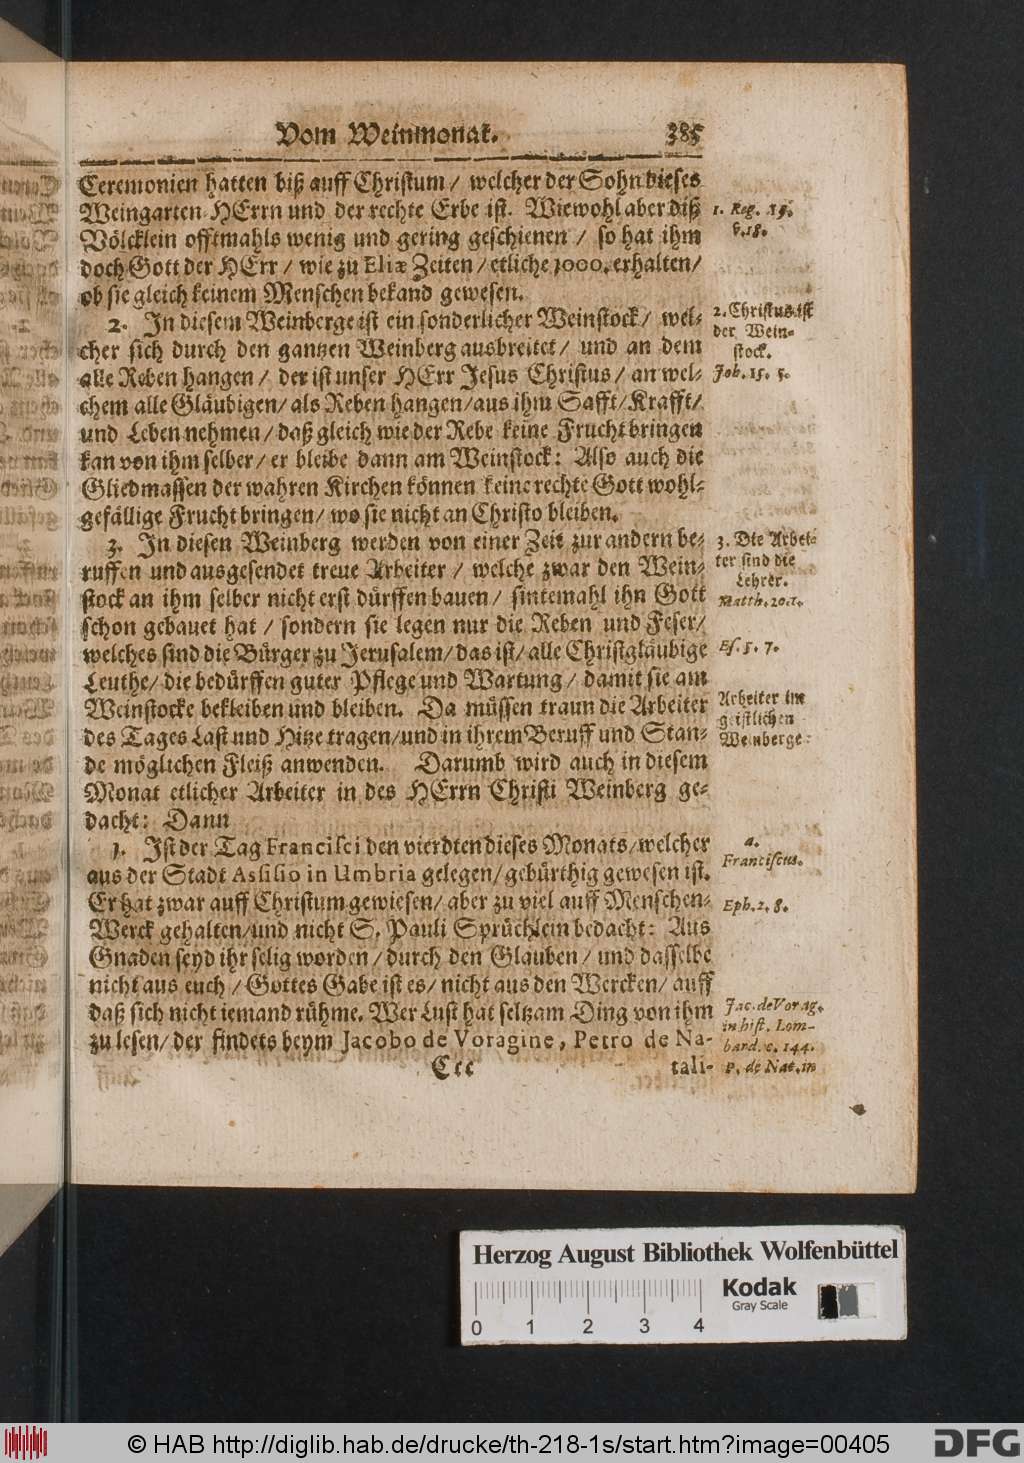 Vom Weinmonat. 385
Ceremonien hatten biß auff Christum / welcher der Sohn dieses
Weingarten-HErrn und der rechte Erbe ist. Wiewohl aber diß
Völcklein offtmahls wenig und gering geschienen / so hat ihm
doch Gott der HErr / wie zu Eliæ Zeiten / etliche 7000. erhalten /
ob sie gleich keinem Menschen bekand gewesen.
1. Reg. 19.
v. 18.
2. In diesem Weinberge ist ein sonderlicher Weinstock / wel-
cher sich durch den gantzen Weinberg ausbreitet / und an dem
alle Reben hangen / der ist unser HErr Jesus Christus / an wel-
chem alle Gläubigen / als Reben hangen / aus ihm Safft / Krafft /
und Leben nehmen / daß gleich wie der Rebe keine Frucht bringen
kan von ihm selber / er bleibe dann am Weinstock: Also auch die
Gliedmassen der wahren Kirchen können keine rechte Gott wohl-
gefällige Frucht bringen / wo sie nicht an Christo bleiben.
2. Christus ist
der Wein-
stock.
Joh. 15. 5.
3. In diesen Weinberg werden von einer Zeit zur andern be-
ruffen und ausgesendet treue Arbeiter / welche zwar den Wein-
stock an ihm selber nicht erst dürffen bauen / sintemahl ihn Gott
schon gebauet hat / sondern sie legen nur die Reben und Feser /
welches sind die Bürger zu Jerusalem / das ist / alle Christgläubige
Leuthe / die bedürffen guter Pflege und Wartung / damit sie am
Weinstocke bekleiben und bleiben. Da müssen traun die Arbeiter
des Tages Last und Hitze tragen / und in ihrem Beruff und Stan-
de möglichen Fleiß anwenden. Darumb wird auch in diesem
Monat etlicher Arbeiter in des HErrn Christi Weinberg ge-
dacht: Dann
3. Die Arbei-
ter sind die
Lehrer.
Matth. 20. 1.
Es. 5. 7.
Arbeiter im
geistlichen
Weinberge:
1. Ist der Tag Francisci den vierdten dieses Monats / welcher
aus der Stadt Assisio in Umbria gelegen / gebürthig gewesen ist.
Er hat zwar auff Christum gewiesen / aber zu viel auff Menschen-
Werck gehalten / und nicht S. Pauli Sprüchlein bedacht: Aus
Gnaden seyd ihr selig worden / durch den Glauben / und dasselbe
nicht aus euch / Gottes Gabe ist es / nicht aus den Wercken / auff
daß sich nicht iemand rühme. Wer Lust hat seltzam Ding von ihm
zu lesen / der findets beym Jacobo de Voragine, Petro de Na-
a.
Franciscus.
Eph. 2. 8.
Jac. de Vorag.
in hist. Lom-
bard. c. 144.
P. de Nat. in
Ccc tali-
Herzog August Bibliothek Wolfenbüttel
Kodak
Gray Scale
0 1 2 3 4
© HAB http://diglib.hab.de/drucke/th-218-1s/start.htm?image=00405
DFG